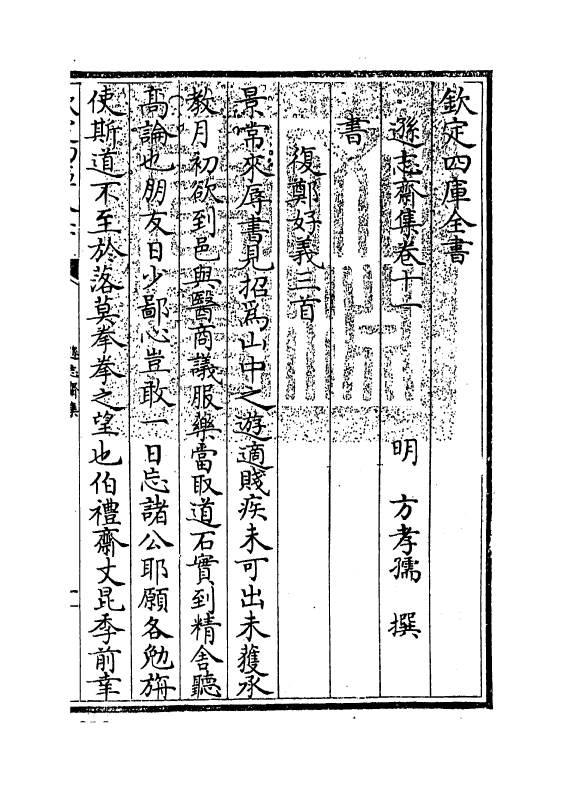 欽定四庫全書
遜志齋集卷十一
明 方孝孺 撰
書
復鄭好義三首
景常來辱書見招為山中之遊適賤疾未可出未獲承
教月初欲到邑與醫商議服藥當取道石實到精舍聽
高論也朋友日少鄙心豈敢一日忘諸公耶願各勉旃
使斯道不至於落莫拳拳之望也伯禮齋丈昆季前幸
遜志齋集
一